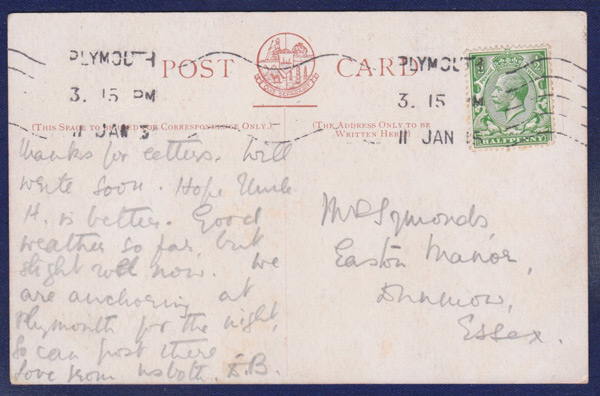 PLYMOUTH
3. 15 PM
11 JAN 15
POST CARD
PLYMOUTH
3. 15 PM
11 JAN 15
HALFPENNY
(THIS SPACE TO BE USED FOR CORRESPONDENCE ONLY.)
(THE ADDRESS ONLY TO BE
WRITTEN HERE)
Thanks for letters. Will
write soon. Hope Uncle
H. is better. Good
weather so far, but
slight roll now. We
are anchoring at
Plymouth for the night,
So can post there
Love from us both. E.B.
Mrs Symonds,
Easton Manor,
Dunmow,
Essex.